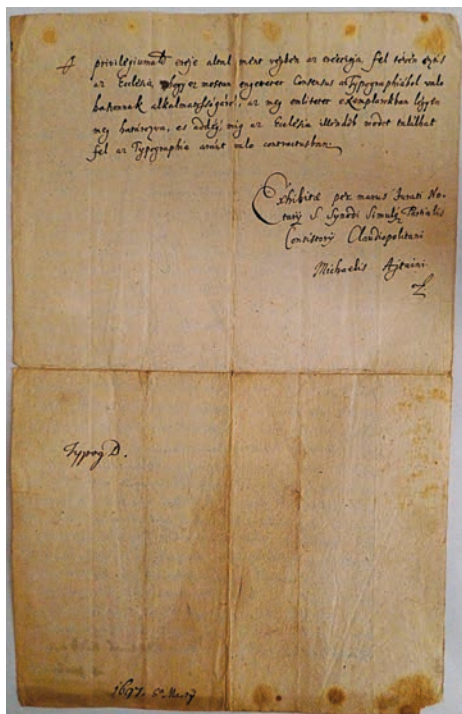 A privilegiumatt ereje altal ment vegben az ereczigja fel tévén ezt is
az Ecclesia hogy ez mostan engetetet Consensus a Typographiából valo
haszonnak alkalmatosságáról, az meg emlitetet exemplarokban légyen
meg határozva, es addig, mig az Ecclesia illendőb módot találhat
fel az Typographia aránt valo contractusban.
Exhibitae per manus Jurati No-
tary S. Synodi Simulq Partialis
Consistory Claudiopolitani
Michaelis Ajtaini
Typog D.
1697.